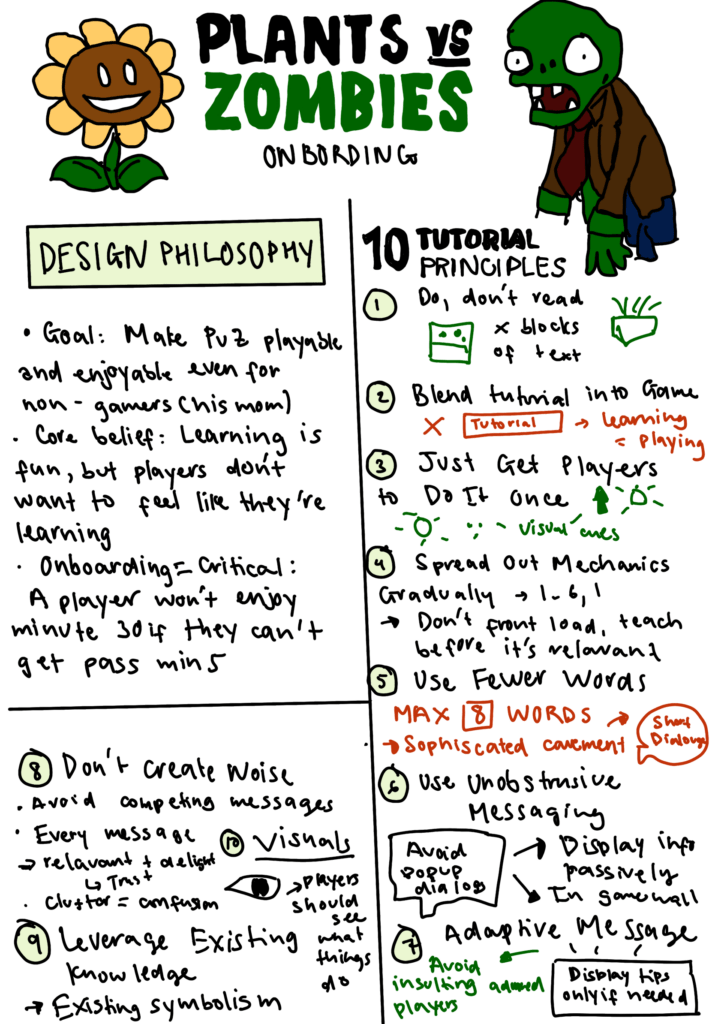 PLANTS VS
ZOMBIES
ONBORDING
DESIGN PHILOSOPHY
• Goal: Make PvZ playable
and enjoyable even for
non-gamers (his mom)
• Core belief: Learning is
fun, but players don't
want to feel like they're
learning
• Onboarding = Critical:
A player won't enjoy
minute 30 if they can't
get pass min 5
10 TUTORIAL
PRINCIPLES
1 Do, don't read
x blocks
of text
2 Blend tutorial into Game
X Tutorial → learning
= playing
3 Just Get Players
to Do It Once
visual cues
4 Spread Out Mechanics
Gradually → 1-6, 1
→ Don't front load, teach
before it's relavant
5 Use Fewer Words
MAX 8 WORDS →
Short
Dialouge
→ Sophiscated cavement
6 Use Unobstrusive
Messaging
Avoid
popup
dialogs
→ Display info
passively
→ In game wall
7 Adaptive Message
Avoid
insulting
players
Display tips
only if needed
8 Don't Create Noise
• Avoid competing messages
• Every message
→ relavant + delight
↳ Trust
• Cluttor = confusion
9 Leverage Existing
Knowledge
→ Existing symbolism
10 Visuals
→ Players
should
see
what
things
do